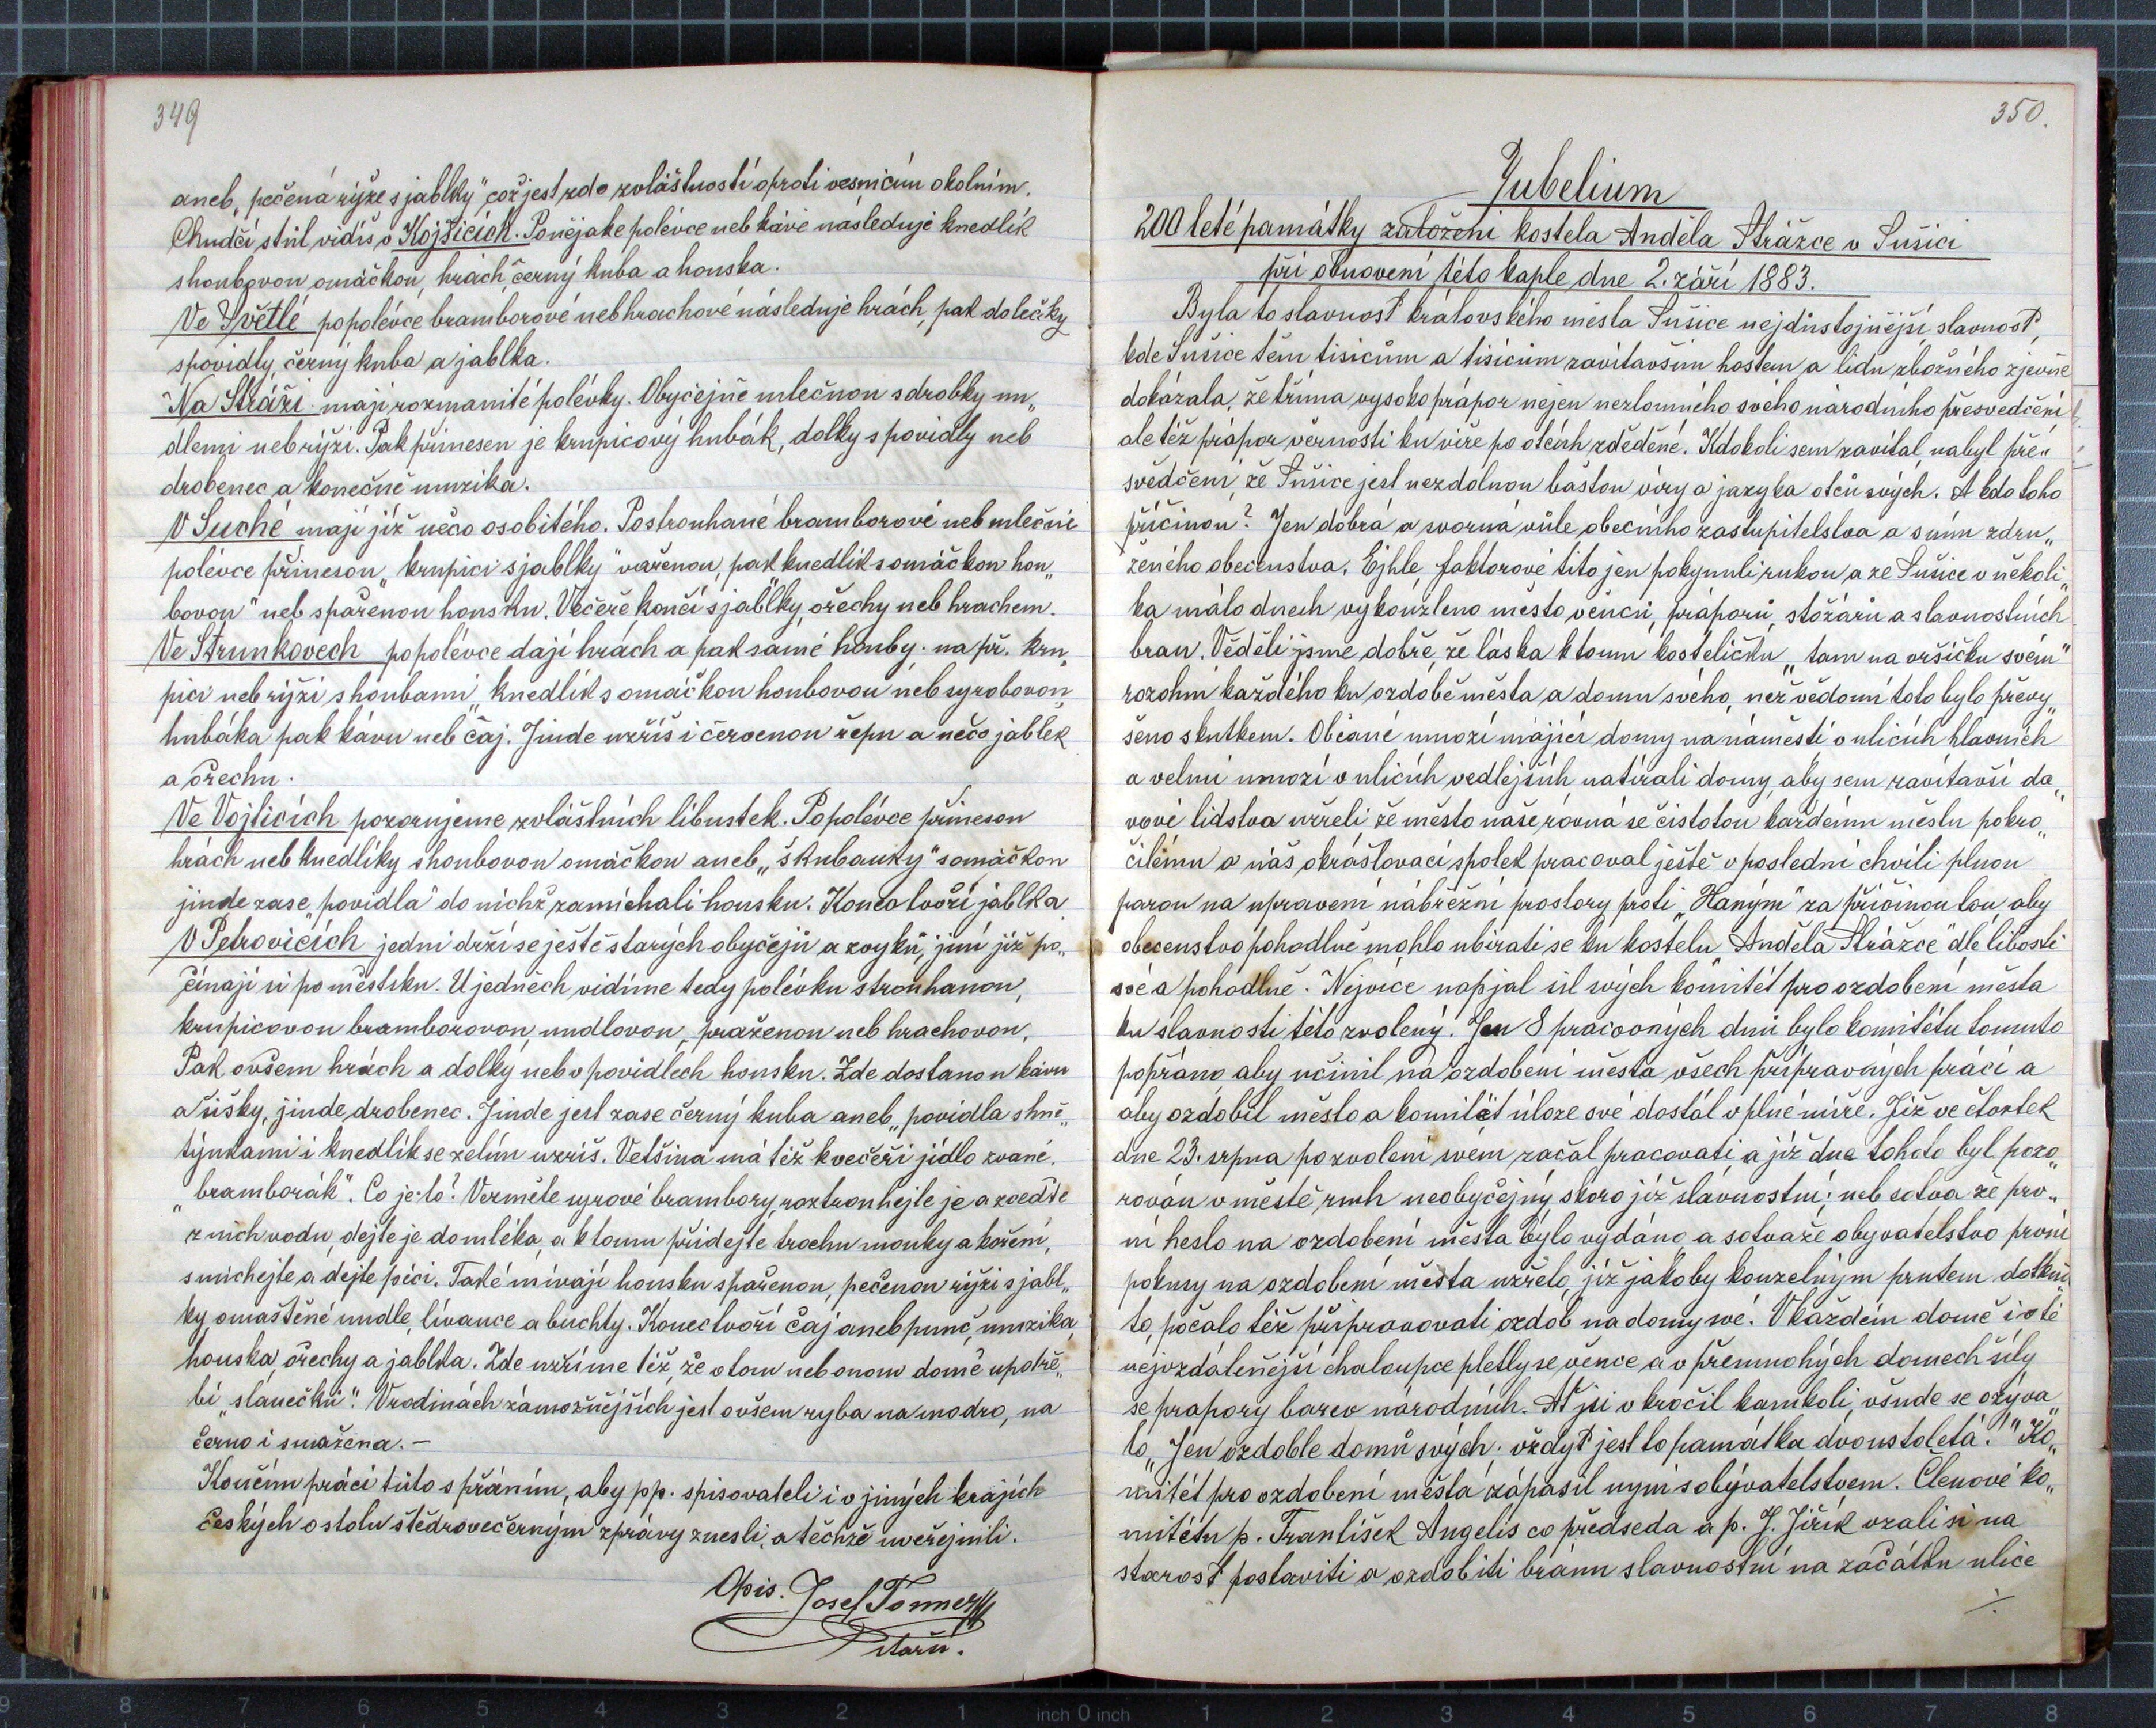 349
aneb „pečená rýže s jablky" což jest zde zvláštností oproti vesnicím okolním.
Chudčí stůl vidíš v Kojšicích. Po nějaké polévce neb kávě následuje knedlík
s houbovou omáčkou, hrách černý kuba a houska.
Ve Světlé po polévce bramborové neb hrachové následuje hrách, pak dolečky
s povidly, černý kuba a jablka.
Na Stráži mají rozmanité polévky. Obyčejně mlečnou s drobky nu„
dlemi neb rýži. Pak přinesen je krupicový hubák, dolky s povidly neb
drobenec a konečně muzika.
V Suché mají již něco osobitého. Po strouhané bramborové neb mlečné
polévce přinesou „krupici s jablky" vařenou, pak knedlík s omáčkou hou„
bovou" neb spařenou housku. Večeře končí s jablky, ořechy neb hrachem.
Ve Strunkovech po polévce dají hrách a pak samé houby. na př. kru„
pici neb rýži s houbami, knedlík s omáčkou houbovou neb syrobovou,
hubáka pak kávu neb čaj. Jinde uzříš i červenou řepu a něco jablek
a ořechu.
Ve Vojticích pozorujeme zvláštních libustek. Po polévce přinesou
hrách neb knedlíky s houbovou omáčkou aneb „škubanky" s omáčkou
jinde zase „povidla" do nichž zamíchali housku. Konec tvoří jablka
V Petrovicích jedni drží se ještě starých obyčejů a zvyků, jiní již po„
čínají si po městsku. U jedněch vidíme tedy polévku strouhanou,
krupicovou bramborovou, nudlovou, praženou neb hrachovou.
Pak ovšem hrách a dolky neb v povidlech housku. Zde dostanou kávu
a šišky, jinde drobenec. Jinde jest zase černý kuba aneb „povidla s hně„
týnkami i knedlík se zelím uzříš. Vetšina má též k večeři jídlo zvané.
„bramborák". Co je to? Vezměte syrové brambory, roztrouhejte je a zceďte
z nich vodu, dejte je do mléka, a k tomu přidejte trochu mouky a koření,
smíchejte a dejte péci. Také mívají housku spařenou, pečenou rýži s jabl„
ky omaštěné nudle, lívance a buchty. Konec tvoří čaj aneb punč, muzika,
houska, ořechy a jablka. Zde uzříme též, že v tom neb onom domě upotře„
bí „slanečků". V rodinách zámožnějších jest ovšem ryba na modro, na
černo i smažena. –
Končím práci tuto s přáním, aby pp. spisovatelé i v jiných krajích
českých o stolu štědrovečerným zprávy znesli, a těchže uveřejnili.
Opis. Josef Tonner
350.
Jubelium
200 leté památky založení kostela Anděla Strážce v Sušici
při obnovení této kaple dne 2. září 1883.
Byla to slavnosť královského města Sušice nejdůstojnější slavnosť,
kde Sušice těm tisicům a tisicům zavítavším hostem a lidu zbožného zjevně
dokázala, že třímá vysoko prápor nejen nezlomného svého národního přesvedčení
ale též prápor věrnosti ku víře po otcích zděděné. Kdokoli sem zavítal nabyl pře„
svědčení, že Sušice jest nezdolnou baštou víry a jazyka otců svých. A kdo toho
příčinou? Jen dobrá a svorná vůle obecního zastupitelstva a s ním zdru„
ženého obecenstva. Ejhle, faktorové tito jen pokynuli rukou a ze Sušice v několi„
ka málo dnech vykouzleno město věnců, práporů, stožárů a slavnostních
bran. Věděli jsme dobře, že láska k tomu kostelíčku „tam na vršíčku svém"
rozohní každého ku ozdobě města a domu svého, než vědomí toto bylo převy„
šeno skutkem. Občané mnozí májíci domy na náměstí v ulicích hlavních
a velmi mnozí v ulicích vedlejších natírali domy, aby sem zavítavší da„
vové lidstva uzřeli že město naše rovná se čistotou každému městu pokro„
čilému a náš okrášlovací spolek pracoval ještě v poslední chvíli plnou
parou na upravení nábřežní prostory proti „Haným" za příčinou tou aby
obecenstvo pohodlně mohlo ubírati se ku kostelu „Anděla Strážce" dle libosti
své a pohodlně. Nejvíce napjal sil svých komitét pro ozdobení města
ku slavnosti této zvolený. Jen 8 pracovných dnů bylo komitétu tomuto
popřáno, aby učinil na ozdobení města všech přípravných prácí a
aby ozdobil město a komitét úloze své dostál v plné míře. Již ve čtvrtek
dne 23. srpna po zvolení svém začal pracovati a již dne tohoto byl pozo„
rován v městě ruch neobyčejný, skoro již slavnostní; neb sotva že prv„
ní heslo na ozdobení města bylo vydáno a sotva že obyvatelstvo první
pokusy na ozdobení města uzřelo, již jakoby kouzelným prutem dotknu„
to, počalo též připravovati ozdob na domy své. V každém domě i v té
nejvzdálenější chaloupce pletly se věnce a v přemnohých domech šily
se prapory barev národních. Ať jsi v kročil kamkoli, všude se ozýva„
lo „Jen ozdobte domů svých; vždyť jest to památka dvoustoletá!" Ko„
mitét pro ozdobení města zápasil nyní s obyvatelstvem. Členové ko„
mitétu p. František Angelis co předseda a p. J. Jiřík vzali si na
starosť postaviti a ozdobiti bránu slavnostní na začátku ulice
./.
9 8 7 6 5 4 3 2 1 inch 0 inch 1 2 3 4 5 6 7 8